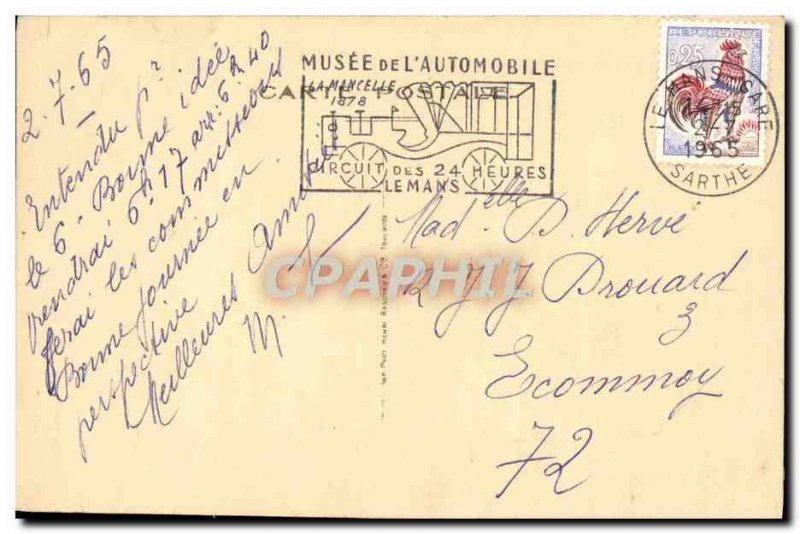 2.7.65
Entendu pr
le 6. Bonne idée
viendrai 6h17 arr: 6h40
ferai les commissions
Bonne journée en
perspective
Meilleures Amitiés
M.
MUSÉE DE L'AUTOMOBILE
LA MANCELLE
1878
CARTE POSTALE
CIRCUIT DES 24 HEURES
LE MANS
REPUBLIQUE
0,25
LE MANS GARE
2-7
1965
SARTHE
Madelle D. Hervé
R J J Drouard
3
Ecommoy
72
CPAPHIL